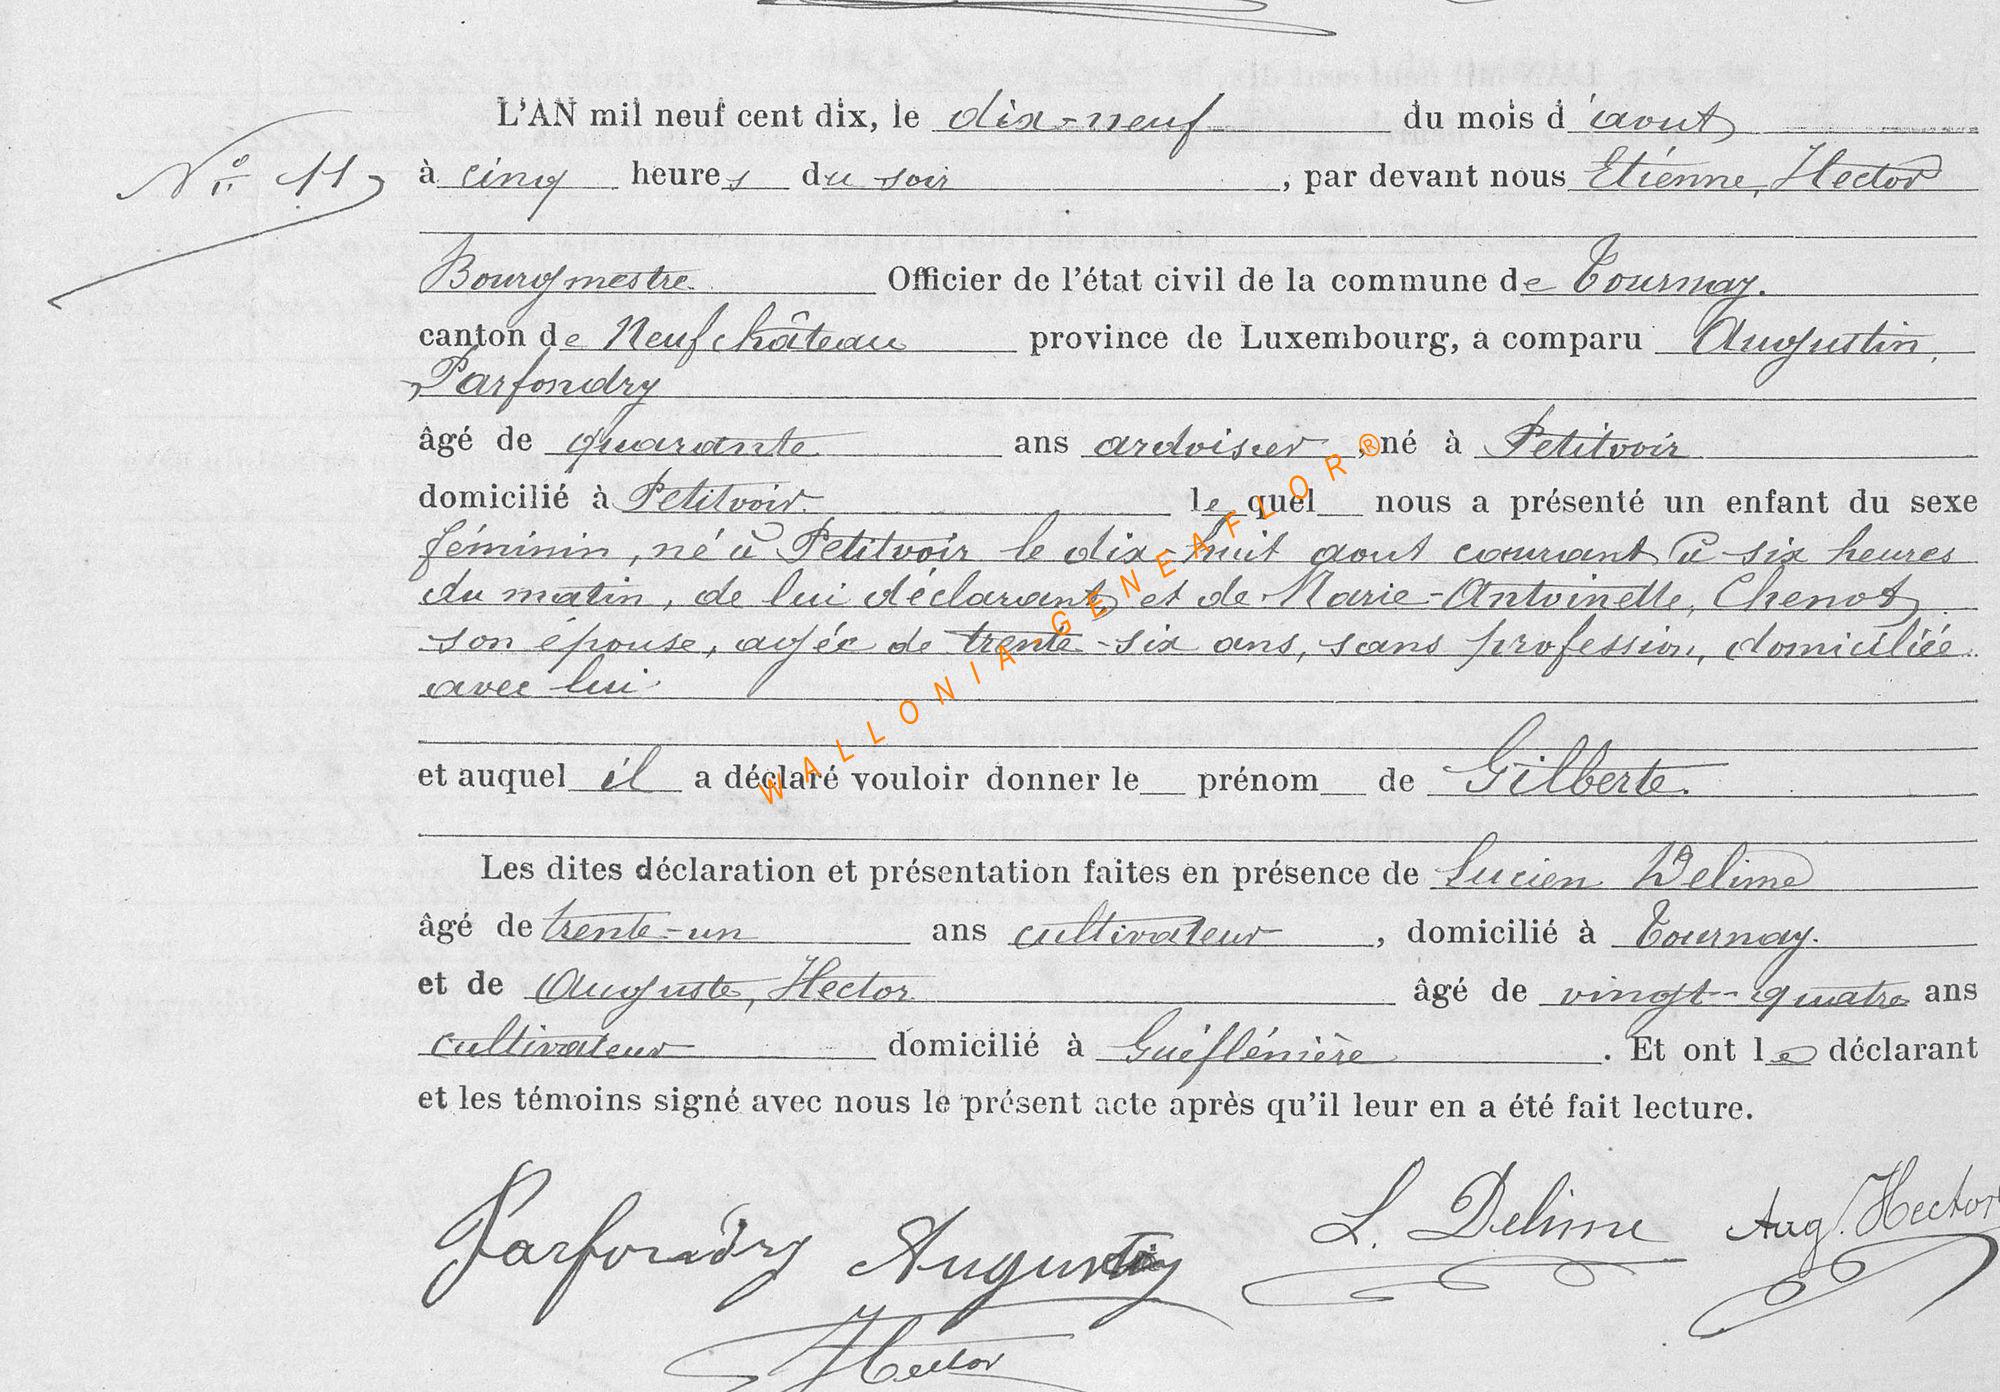 L'AN mil neuf cent dix, le dix-neuf du mois d'aout
N° 11
à cinq heures du soir, par devant nous Etienne, Hector
Bourgmestre Officier de l'état civil de la commune de Tournay.
canton de Neufchâteau province de Luxembourg, a comparu Augustin,
Parfondry
âgé de quarante ans ardoisier, né à Petitvoir
domicilié à Petitvoir. lequel nous a présenté un enfant du sexe
féminin, né à Petitvoir le dix-huit aout courant à six heures
du matin, de lui déclarant et de Marie-Antoinette, Chenot
son épouse, agée de trente-six ans, sans profession, domiciliée
avec lui.
et auquel il a déclaré vouloir donner le prénom de Gilberte.
Les dites déclaration et présentation faites en présence de Lucien Delime
âgé de trente-un ans cultivateur, domicilié à Tournay.
et de Auguste, Hector âgé de vingt-quatre ans
cultivateur domicilié à Gueflénière. Et ont le déclarant
et les témoins signé avec nous le présent acte après qu'il leur en a été fait lecture.
Parfondry Augustin L. Delime Aug. Hector
Hector
WALLONIA-GENEAFLOR®